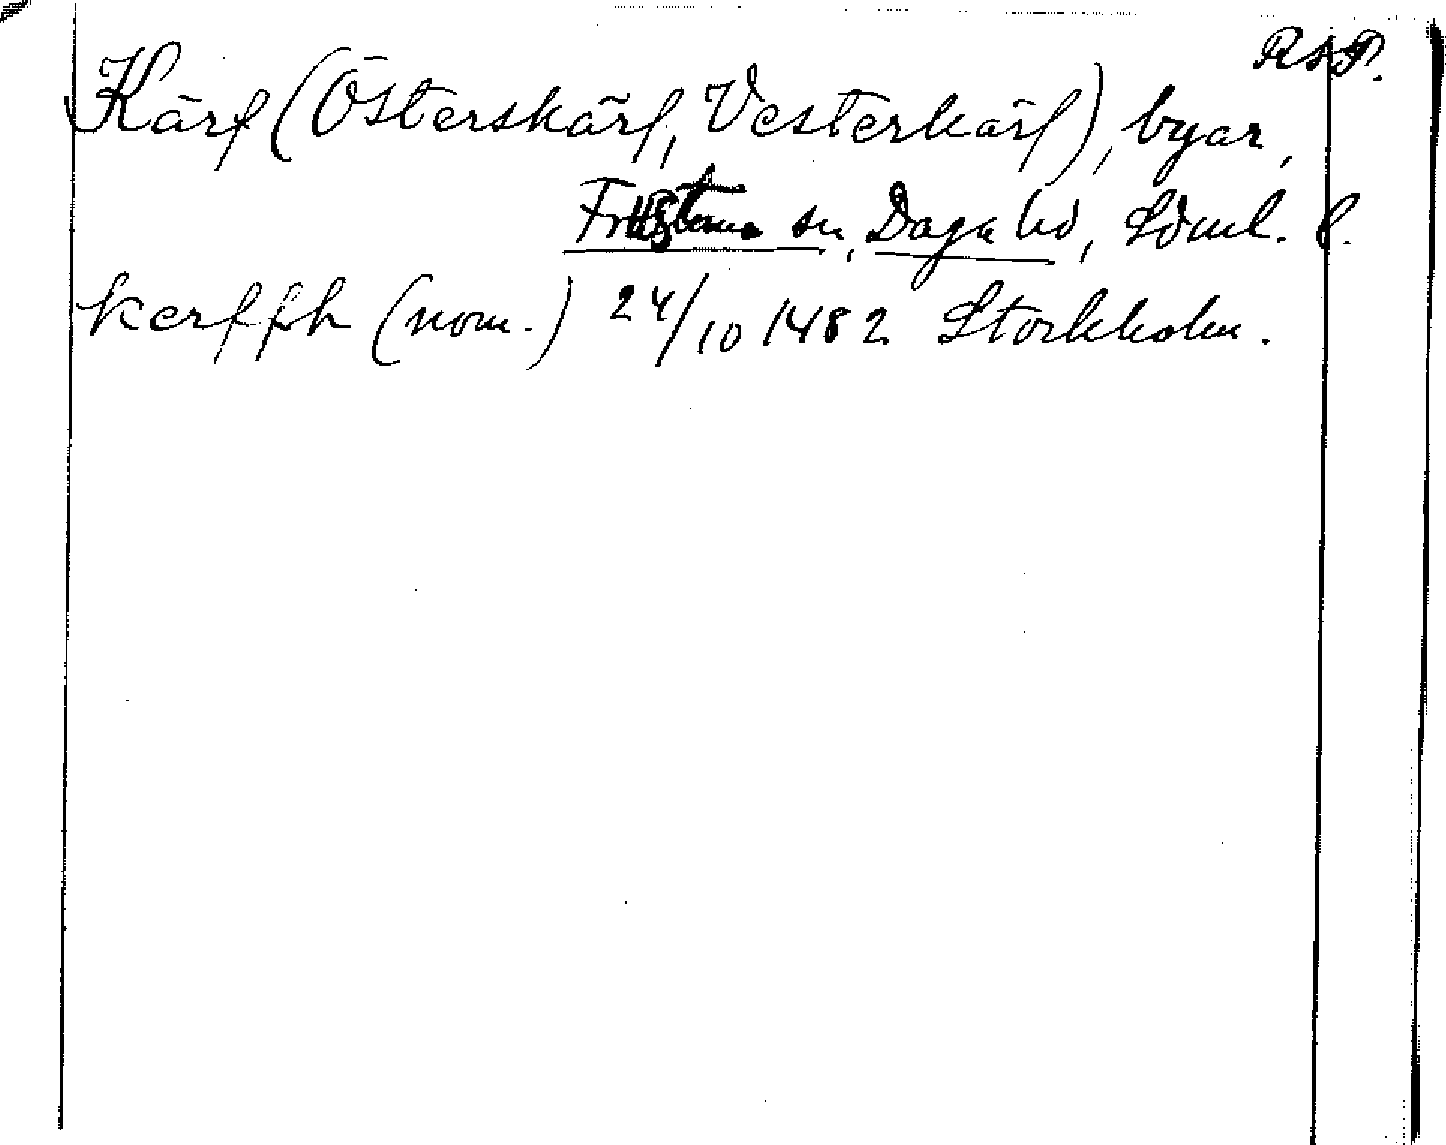 RAP.
Kärf (Österskärf, Vesterkärf), byar,
Frustuna sn, Daga hd, Södml. l.
kerffh (nom.) 24/10 1482 Stockholm.